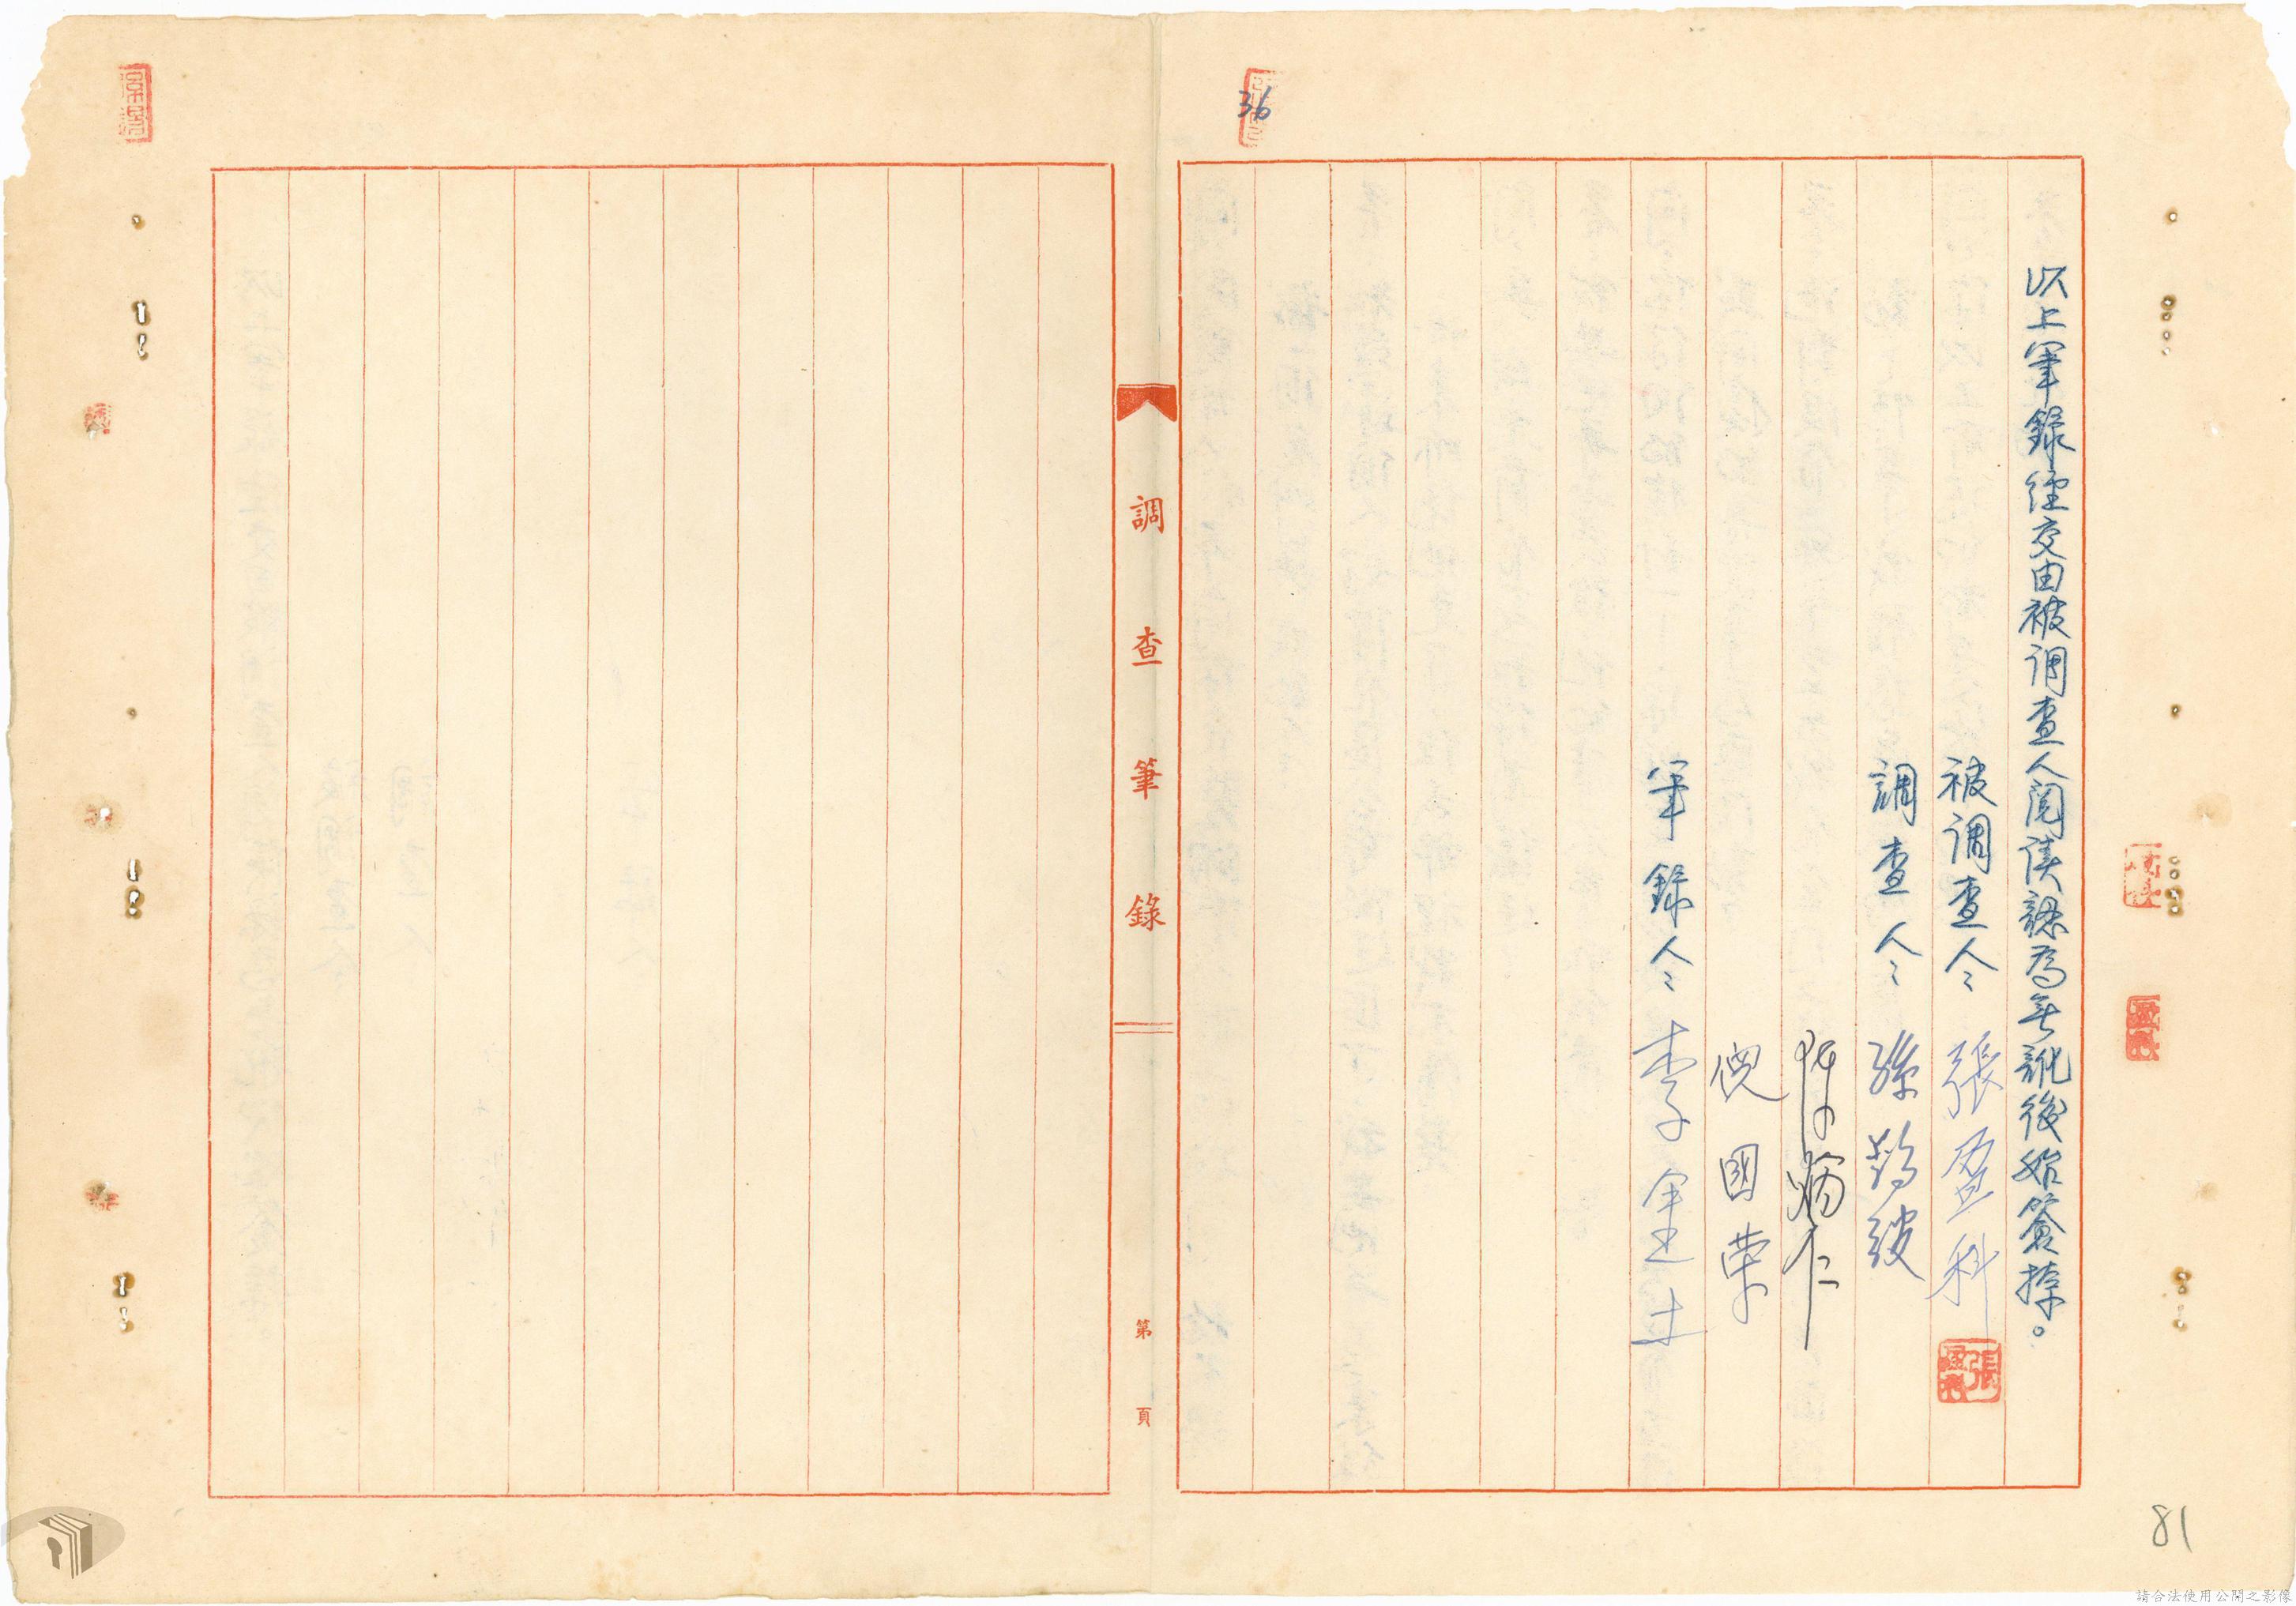 36
以上筆錄經交由被調查人閱讀認為無訛後始簽捺。
被調查人：張盈科
調查人：孫
倪國榮
筆錄人：李
調查筆錄
第 頁
張
81
請合法使用公開之影像